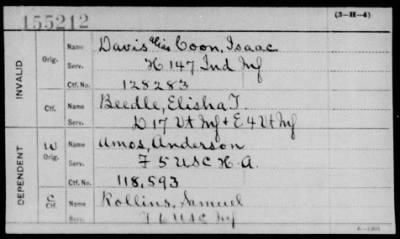 155212 (3-H-4)
INVALID
Orig. Name Davis alias Coon, Isaac
Serv. H 147 Ind Inf
Ctf. No. 128283
Ctf. Name Beedle, Elisha T.
Serv. D 17 Vt Inf + E 4 Vt Inf
DEPENDENT
W Orig. Name Amos, Anderson
Serv. F 5 USC H.A.
Ctf. No. 118,593
C Ctf. Name Rollins, Samuel
Serv. I 6 USC Inf